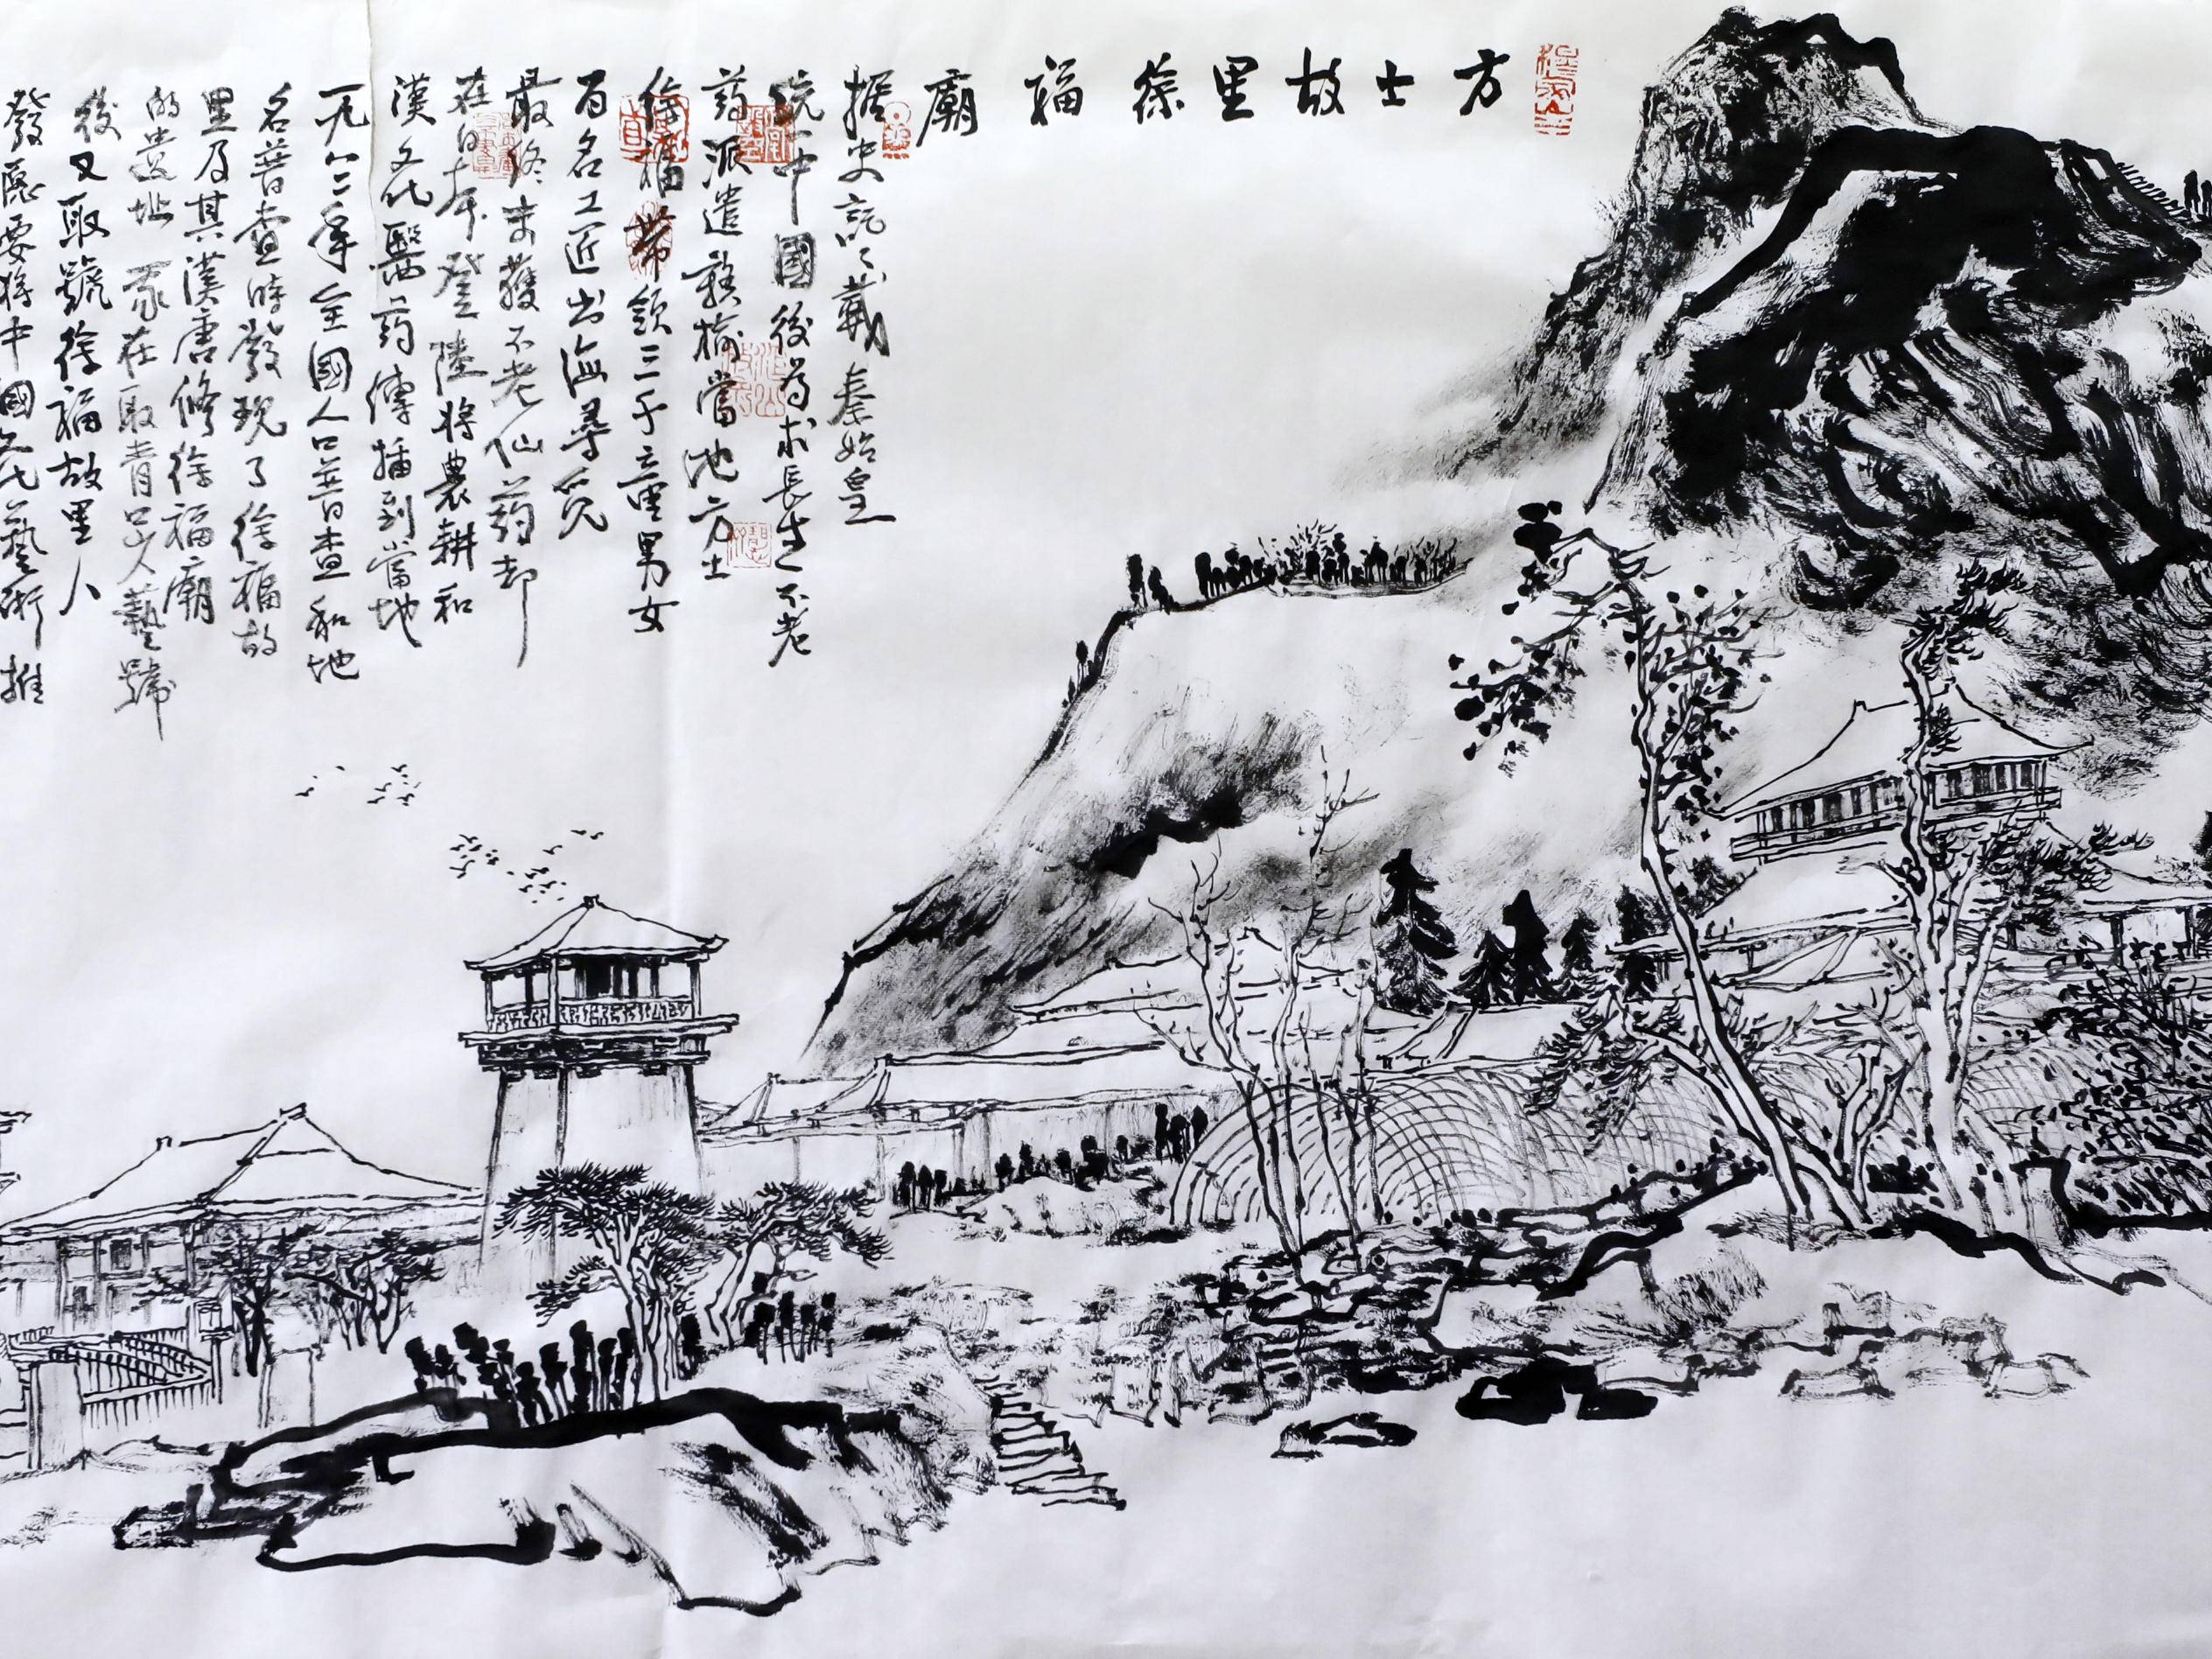 方士故里徐福廟
据史記記載秦始皇
统一中國後為求長生不老
葯派遣赣榆當地方士
徐福帶領三千童男女
百名工匠出海尋覓
最終未獲不老仙葯却
在日本登陸將農耕和
漢文化醫葯傳播到當地
一九八二年全國人口普查和地
名普查時發現了徐福故
里及其漢唐修徐福廟
的遺址 我在取青口人藝號
後又取號徐福故里人
發愿要將中國文化藝術推